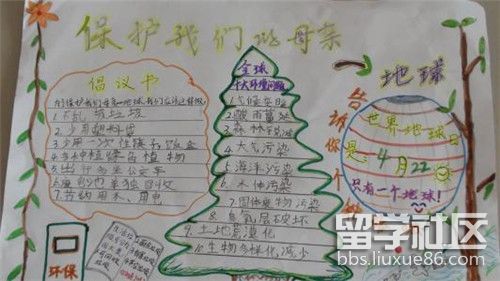 保护我们的母亲
倡议书
为保护我们
1. 不乱扔垃圾
2. 少用塑料袋
3. 少用一次性筷子、饭盒
4. 多种植绿色植物
5. 出行多坐公交车
7. 节约用水、用电
环保
全球
十大环境问题
1. 气候变暖
2. 酸雨蔓延
3. 森林
4. 大气污染
5. 海洋污染
6. 水体污染
7. 固体废物污染
8. 臭氧层破坏
9. 土地荒漠化
10. 生物多样化减少
告诉你个
地球
世界地球日
是: 4月22
只有一个地球!
留学社区
bbs.liuxue86.com